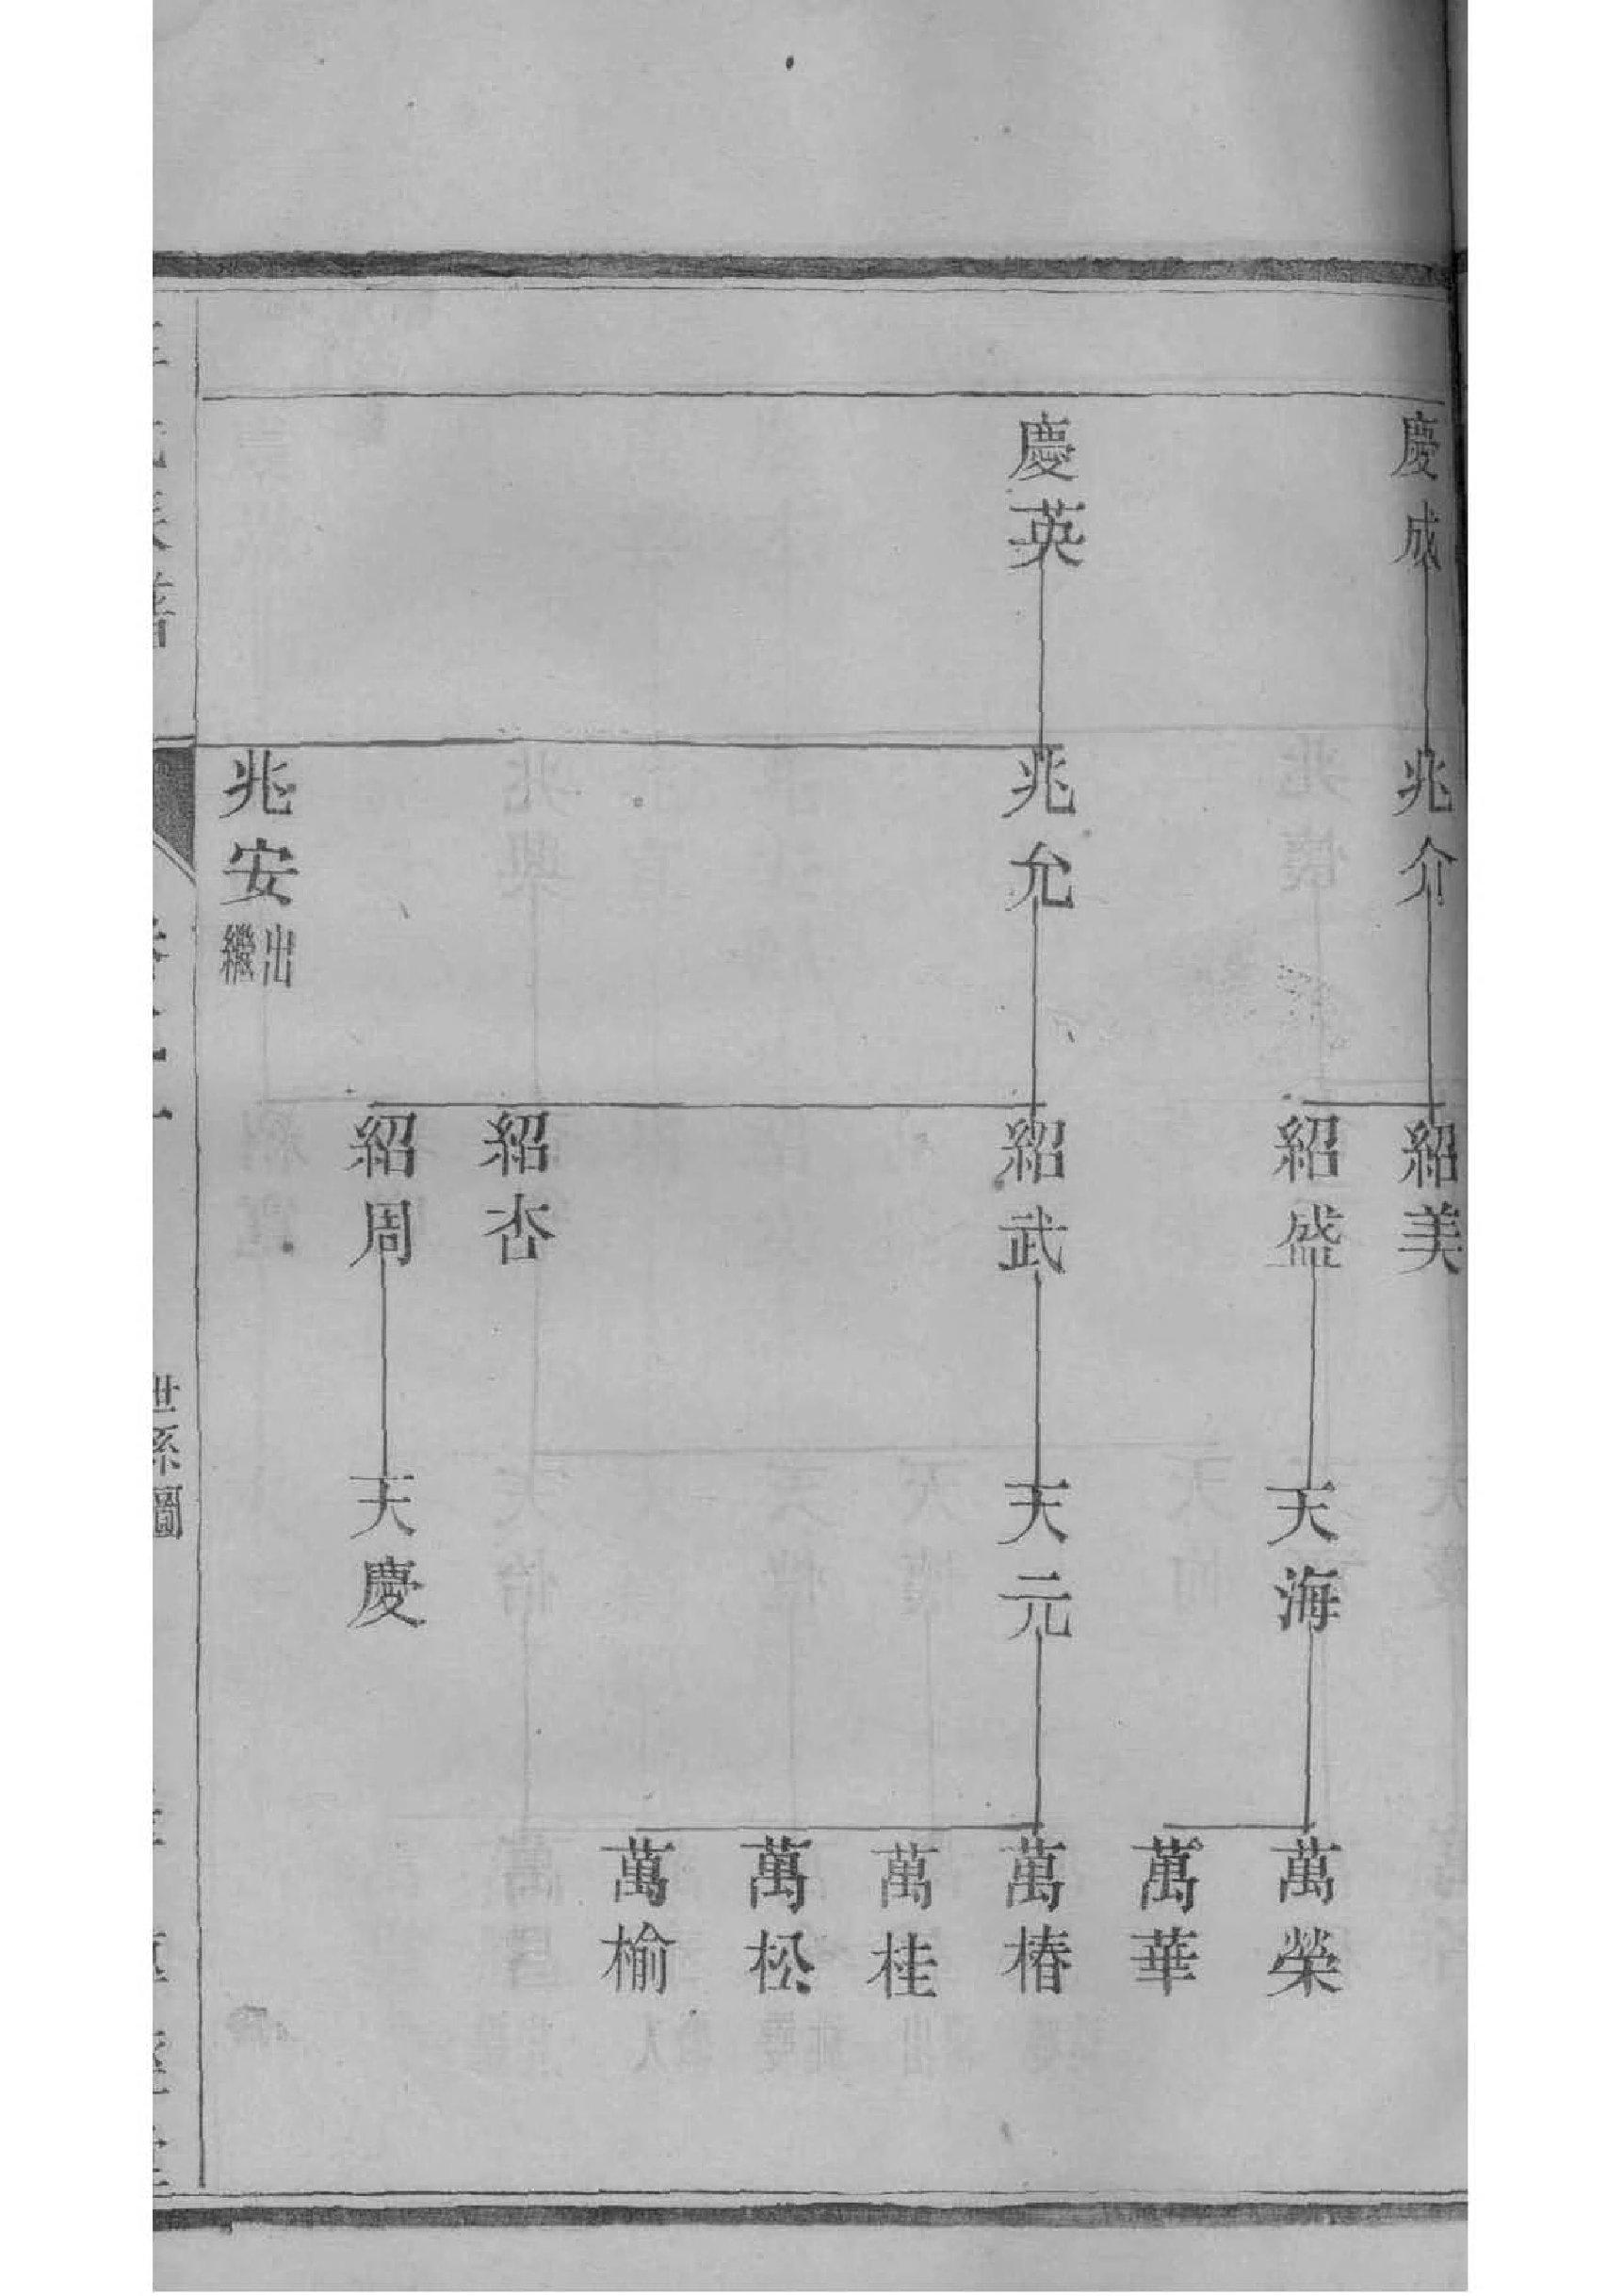 慶成
兆介
紹美
紹盛
天海
萬榮
萬華
慶英
兆允
紹武
天元
萬椿
萬桂
萬松
萬榆
紹杏
紹周
天慶
兆安
出繼
世系圖